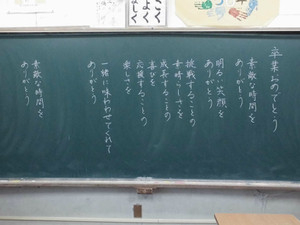 卒業おめでとう
素敵な時間を
ありがとう
明るい笑顔を
ありがとう
挑戦することの
素晴らしさを
成長することの
喜びを
応援することの
楽しさを
一緒に味わわせてくれて
ありがとう
素敵な時間を
ありがとう